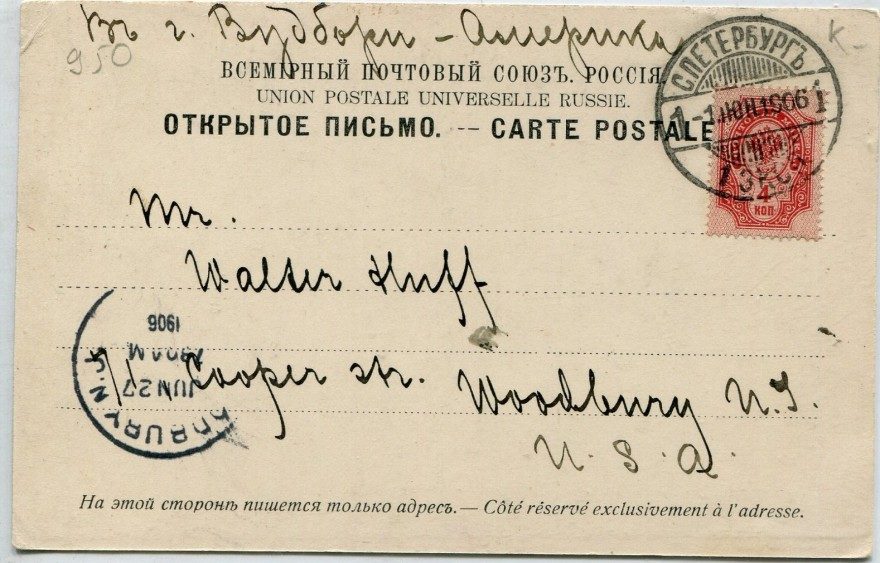 Въ г. Вудбори - Америка
950
К-
ВСЕМІРНЫЙ ПОЧТОВЫЙ СОЮЗЪ. РОССІЯ.
UNION POSTALE UNIVERSELLE RUSSIE.
ОТКРЫТОЕ ПИСЬМО. -- CARTE POSTALE
С.ПЕТЕРБУРГЪ
1906
1
4
КОП
Mr.
Walter Huff
Cooper str. Woodbury N.J.
U. S. A.
1906
JUN 27
DBURY N.J.
На этой сторонѣ пишется только адресъ. — Côté réservé exclusivement à l'adresse.